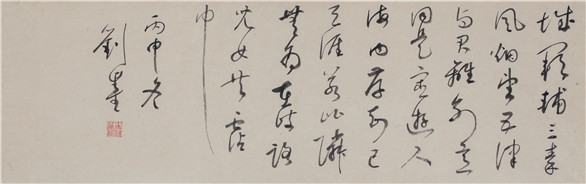 城闕輔三秦
風烟望五津
與君離別意
同是宦遊人
海内存知己
天涯若比隣
無為在岐路
兒女共霑
巾
丙申冬
劉